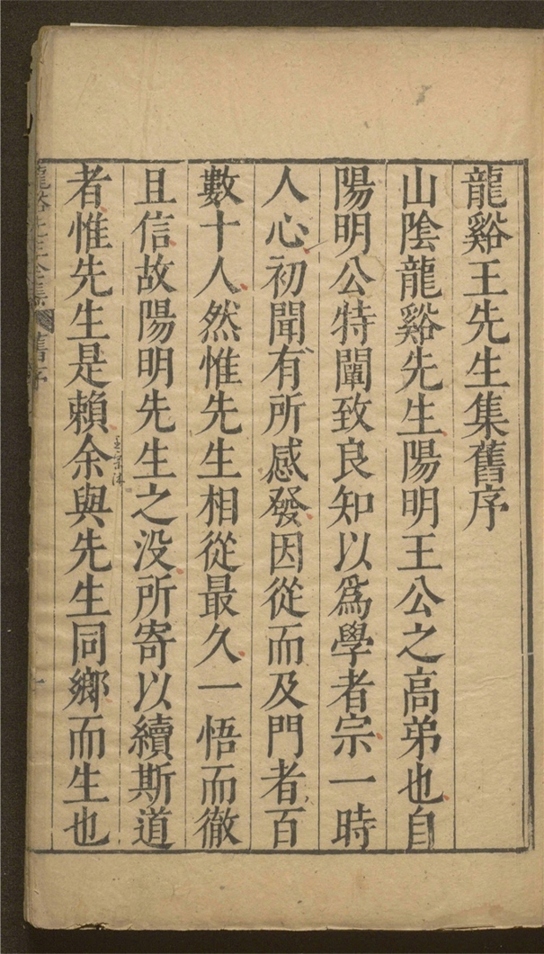 龍谿王先生集舊序
山陰龍谿先生陽明王公之高弟也自
陽明公特闡致良知以爲學者宗一時
人心初聞有所感發因從而及門者百
數十人然惟先生相從最久一悟而徹
且信故陽明先生之没所寄以續斯道
者惟先生是賴余與先生同鄉而生也
龍谿王先生全集
舊序
一